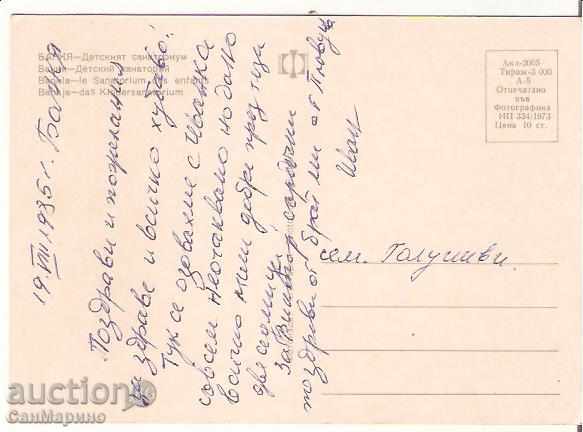 БАНКЯ—Детският санаториум
Банкя—Детский санаторий
Bankja—le Sanatorium des enfants
Bankja—das Kindersanatorium
Акл-2005
Тираж-3 000
А-5
Отпечатано
във
Фотографика
ИП 334-1973
Цена 10 ст.
19.VIII.1985 г. Банкя
Поздрави и пожелания
за здраве и всичко хубаво!
Тук се озовахме с Иванка
съвсем неочаквано но дано
всичко мине добре през тези
две седмици.
За Виктор сърдечни
поздрави от брат ми от Пловдив
Иван
сем. Голушиви
auction
СанМарино